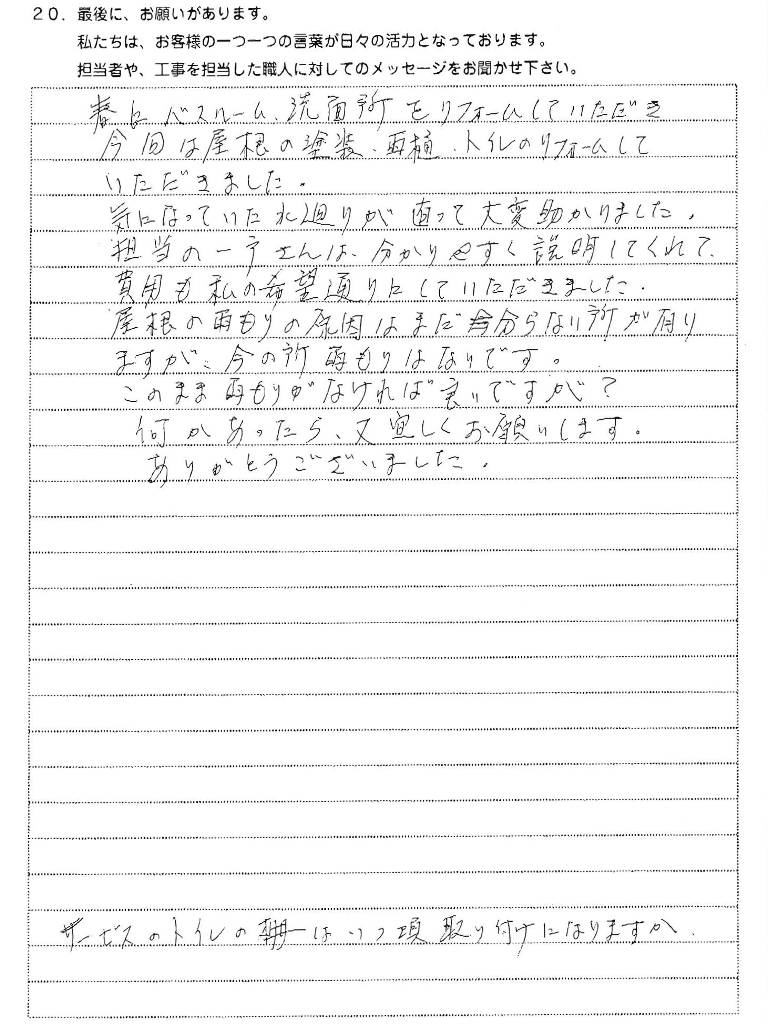 20. 最後に、お願いがあります。
私たちは、お客様の一つ一つの言葉が日々の活力となっております。
担当者や、工事を担当した職人に対してのメッセージをお聞かせ下さい。
春にバスルーム、洗面所をリフォームしていただき
今回は屋根の塗装、雨樋、トイレのリフォームして
いただきました。
気になっていた水廻りが直って大変助かりました。
担当の一戸さんは、分かりやすく説明してくれて、
費用も私の希望通りにしていただきました。
屋根の雨もりの原因はまだ分らない所が有り
ますが、今の所雨もりはないです。
このまま雨もりがなければ良いですが?
何かあったら、又宜しくお願いします。
ありがとうございました。
サービスのトイレの は いつ頃 取り付けになりますか。